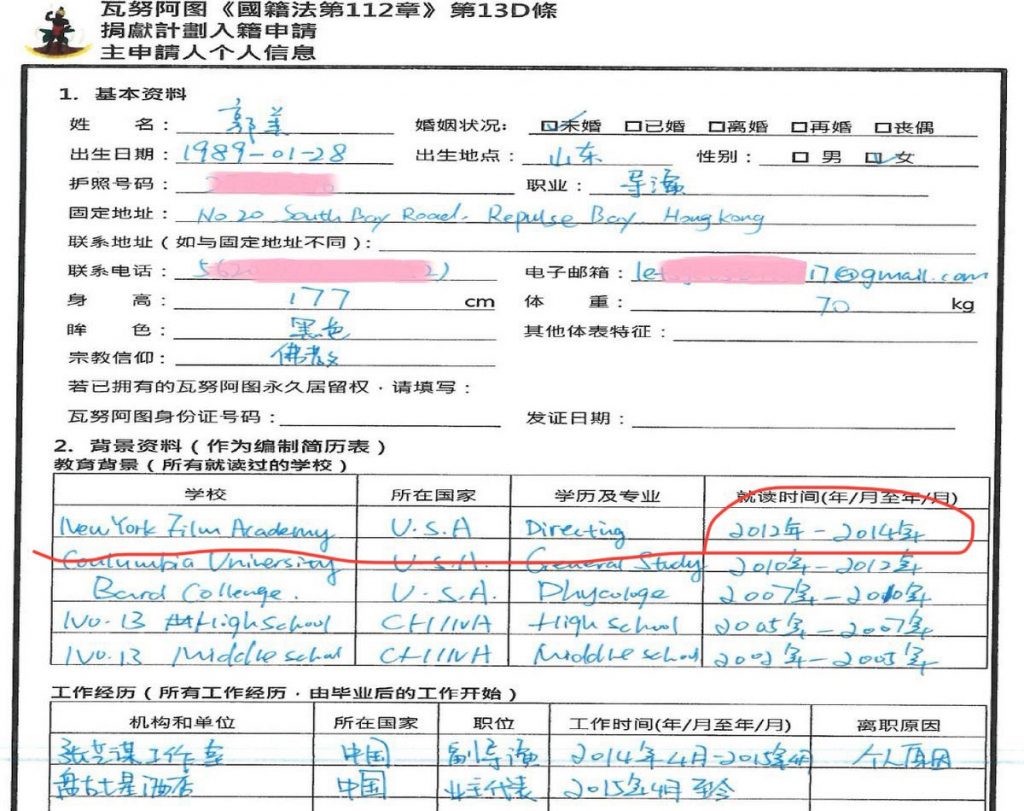 瓦努阿图《國籍法第112章》第13D條
捐獻計劃入籍申請
主申請人个人信息
1. 基本资料
姓 名：郭美 婚姻状况：☑未婚 □已婚 □离婚 □再婚 □丧偶
出生日期：1989-01-28 出生地点：山东 性别：□ 男 ☑女
护照号码： 职业：导演
固定地址：No 20 South Bay Road. Repulse Bay. Hong Kong
联系地址（如与固定地址不同）：
联系电话： 电子邮箱：le 17@gmail.com
身 高：177 cm 体 重：70 kg
眸 色：黑色 其他体表特征：
宗教信仰：佛教
若已拥有的瓦努阿图永久居留权，请填写：
瓦努阿图身份证号码： 发证日期：
2. 背景资料（作为编制简历表）
教育背景（所有就读过的学校）
学校 所在国家 学历及专业 就读时间(年/月至年/月)
New York Film Academy U.S.A Directing 2012年-2014年
Coulumbia University U.S.A. General Study 2010年-2012年
Bard Collenge. U.S.A. Phycologe 2007年-2010年
No.13 High School CHINA High school 2005年-2007年
No.13 Middle school CHINA Middle school 2002年-2005年
工作经历（所有工作经历，由毕业后的工作开始）
机构和单位 所在国家 职位 工作时间(年/月至年/月) 离职原因
张艺谋工作室 中国 副导演 2014年4月-2015年4月 个人原因
盘古七星酒店 中国 业主代表 2015年4月至今